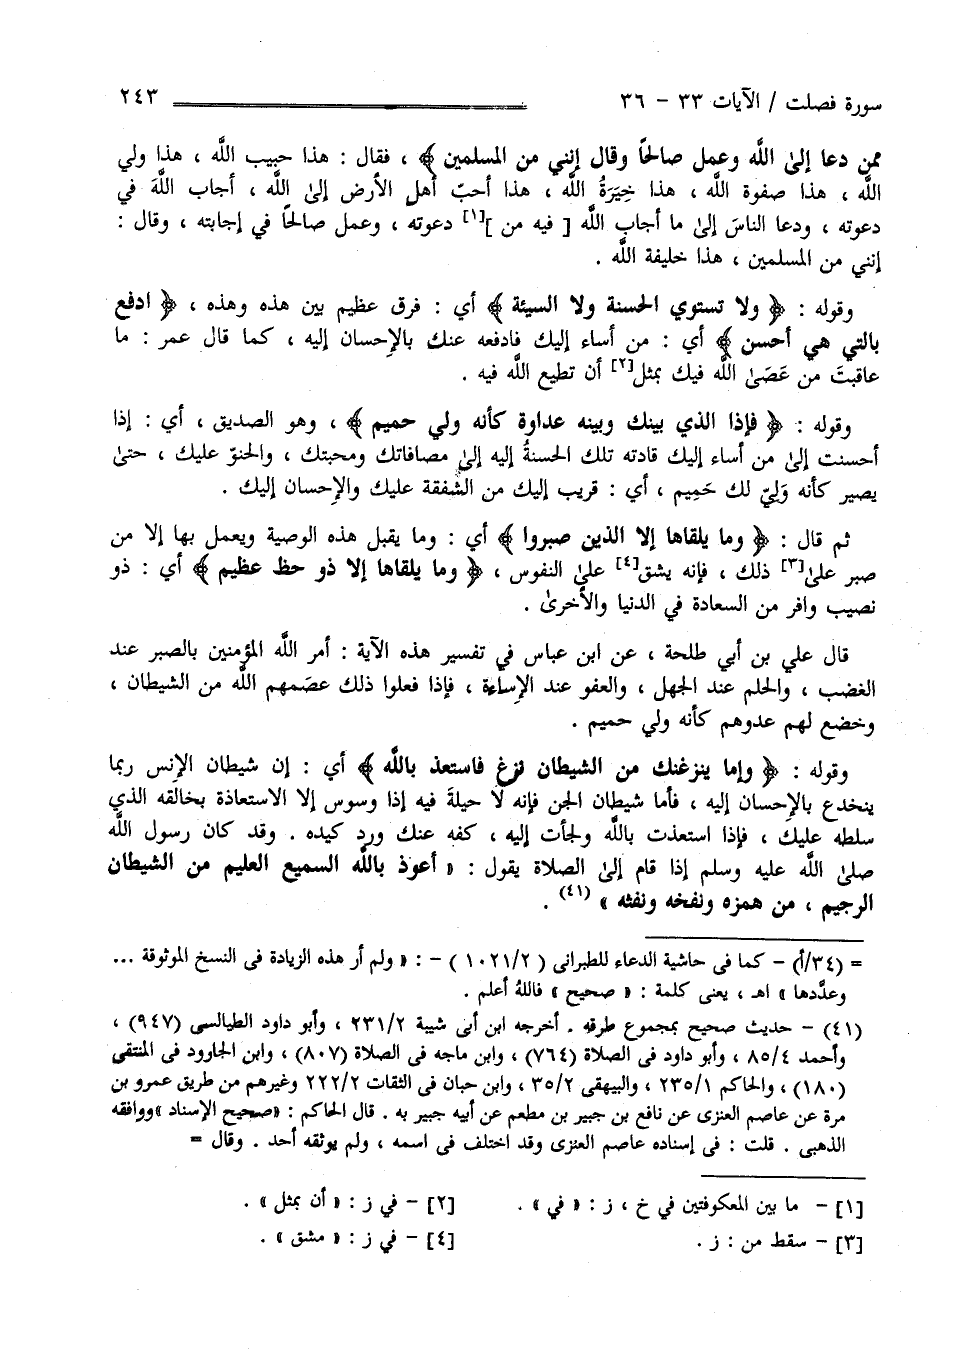 سورة فصلت / الآيات ٣٣ - ٣٦ ٢٤٣
ممن دعا إلىٰ اللَّه وعمل صالحًا وقال إنني من المسلمين ﴾ ، فقال : هذا حبيب اللَّه ، هذا ولي
اللَّه ، هذا صفوة اللَّه ، هذا خِيَرَةُ اللَّه ، هذا أحبّ أهلِ الأرض إلىٰ اللَّه ، أجاب اللَّهَ في
دعوته ، ودعا الناسَ إلىٰ ما أجاب اللَّه [ فيه من ][١] دعوته ، وعمل صالحًا في إجابته ، وقال :
إنني من المسلمين ، هذا خليفة اللَّه .
وقوله : ﴿ ولا تستوي الحسنة ولا السيئة ﴾ أي : فرق عظيم بين هذه وهذه ، ﴿ ادفع
بالتي هي أحسن ﴾ أي : من أساء إليك فادفعه عنك بالإحسان إليه ، كما قال عمر : ما
عاقبتَ من عَصَىٰ اللَّه فيك بمثل[٢] أن تطيع اللَّه فيه .
وقوله : ﴿ فإذا الذي بينك وبينه عداوة كأنه ولي حميم ﴾ ، وهو الصديق ، أي : إذا
أحسنت إلىٰ من أساء إليك قادته تلك الحسنةُ إليه إلىٰ مصافاتك ومحبتك ، والحنوّ عليك ، حتىٰ
يصير كأنه وَلِيّ لك حَمِيم ، أي : قريب إليك من الشفقة عليك والإحسان إليك .
ثم قال : ﴿ وما يلقاها إلا الذين صبروا ﴾ أي : وما يقبل هذه الوصية ويعمل بها إلا من
صبر علىٰ[٣] ذلك ، فإنه يشق[٤] علىٰ النفوس ، ﴿ وما يلقاها إلا ذو حظ عظيم ﴾ أي : ذو
نصيب وافر من السعادة في الدنيا والأخرىٰ .
قال علي بن أبي طلحة ، عن ابن عباس في تفسير هذه الآية : أمر اللَّه المؤمنين بالصبر عند
الغضب ، والحلم عند الجهل ، والعفو عند الإساءة ، فإذا فعلوا ذلك عصَمهم اللَّه من الشيطان ،
وخضع لهم عدوهم كأنه ولي حميم .
وقوله : ﴿ وإما ينزغنك من الشيطان نزغ فاستعذ باللَّه ﴾ أي : إن شيطان الإنس ربما
ينخدع بالإحسان إليه ، فأما شيطان الجن فإنه لا حيلةَ فيه إذا وسوس إلا الاستعاذة بخالقه الذي
سلطه عليك ، فإذا استعذت باللَّه ولجأت إليه ، كفه عنك ورد كيده . وقد كان رسول اللَّه
صلىٰ اللَّه عليه وسلم إذا قام إلىٰ الصلاة يقول : « أعوذ باللَّه السميع العليم من الشيطان
الرجيم ، من همزه ونفخه ونفثه » (٤١) .
= (٣٤/أ) - كما فى حاشية الدعاء للطبرانى ( ١٠٢١/٢ ) - : « ولم أر هذه الزيادة فى النسخ الموثوقة ...
وعدَّدها » اهـ ، يعنى كلمة : « صحيح » فاللهُ أعلم .
(٤١) - حديث صحيح بمجموع طرقه . أخرجه ابن أبى شيبة ٢٣١/٢ ، وأبو داود الطيالسى (٩٤٧) ،
وأحمد ٨٥/٤ ، وأبو داود فى الصلاة (٧٦٤) ، وابن ماجه فى الصلاة (٨٠٧) ، وابن الجارود فى المنتقى
(١٨٠) ، والحاكم ٢٣٥/١ ، والبيهقى ٣٥/٢ ، وابن حبان فى الثقات ٢٢٢/٢ وغيرهم من طريق عمرو بن
مرة عن عاصم العنزى عن نافع بن جبير بن مطعم عن أبيه جبير به . قال الحاكم : «صحيح الإسناد »ووافقه
الذهبى . قلت : فى إسناده عاصم العنزى وقد اختلف فى اسمه ، ولم يوثقه أحد . وقال =
[١] - ما بين المعكوفتين في خ ، ز : « في » . [٢] - في ز : « أن بمثل » .
[٣] - سقط من : ز . [٤] - في ز : « مشق » .